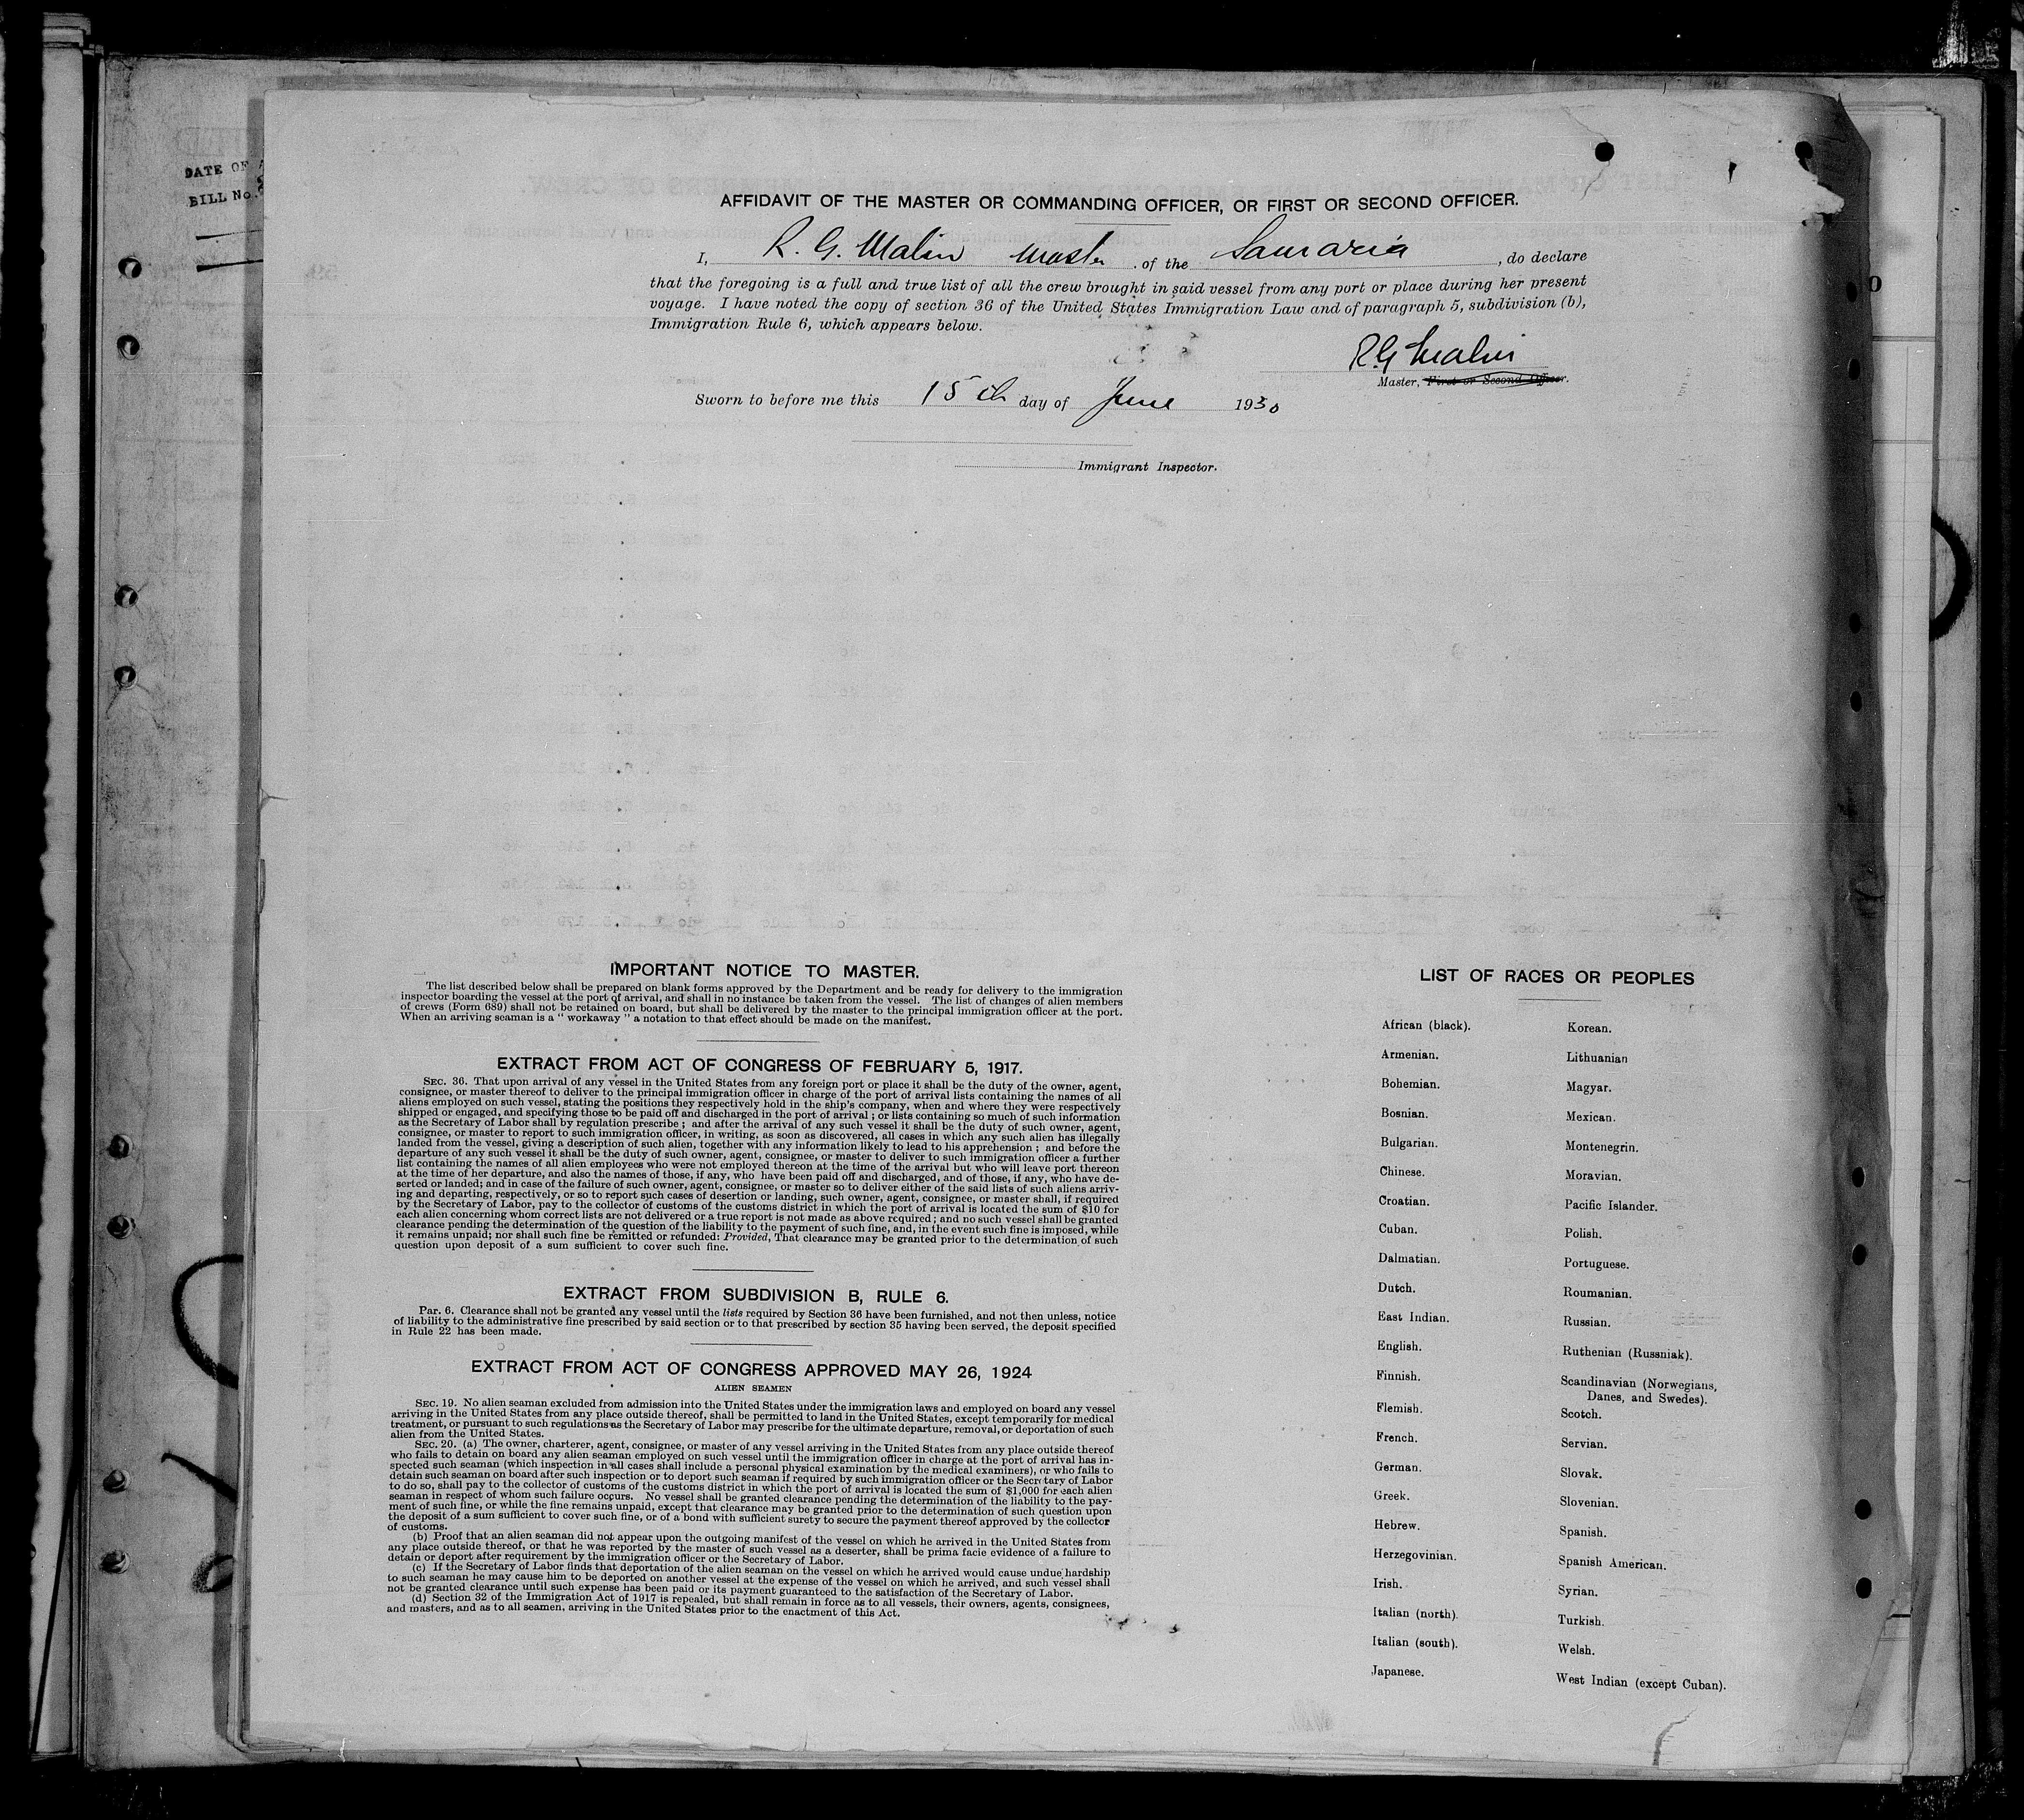 DATE OF
BILL No.
AFFIDAVIT OF THE MASTER OR COMMANDING OFFICER, OR FIRST OR SECOND OFFICER.
I, R. G. Malin Master of the Samaria, do declare
that the foregoing is a full and true list of all the crew brought in said vessel from any port or place during her present
voyage. I have noted the copy of section 36 of the United States Immigration Law and of paragraph 5, subdivision (b),
Immigration Rule 6, which appears below.
R G Malin
Master, First or Second Officer.
Sworn to before me this 15th day of June 1930
Immigrant Inspector.
IMPORTANT NOTICE TO MASTER.
The list described below shall be prepared on blank forms approved by the Department and be ready for delivery to the immigration
inspector boarding the vessel at the port of arrival, and shall in no instance be taken from the vessel. The list of changes of alien members
of crews (Form 689) shall not be retained on board, but shall be delivered by the master to the principal immigration officer at the port.
When an arriving seaman is a " workaway " a notation to that effect should be made on the manifest.
EXTRACT FROM ACT OF CONGRESS OF FEBRUARY 5, 1917.
SEC. 36. That upon arrival of any vessel in the United States from any foreign port or place it shall be the duty of the owner, agent,
consignee, or master thereof to deliver to the principal immigration officer in charge of the port of arrival lists containing the names of all
aliens employed on such vessel, stating the positions they respectively hold in the ship's company, when and where they were respectively
shipped or engaged, and specifying those to be paid off and discharged in the port of arrival ; or lists containing so much of such information
as the Secretary of Labor shall by regulation prescribe ; and after the arrival of any such vessel it shall be the duty of such owner, agent,
consignee, or master to report to such immigration officer, in writing, as soon as discovered, all cases in which any such alien has illegally
landed from the vessel, giving a description of such alien, together with any information likely to lead to his apprehension ; and before the
departure of any such vessel it shall be the duty of such owner, agent, consignee, or master to deliver to such immigration officer a further
list containing the names of all alien employees who were not employed thereon at the time of the arrival but who will leave port thereon
at the time of her departure, and also the names of those, if any, who have been paid off and discharged, and of those, if any, who have de-
serted or landed; and in case of the failure of such owner, agent, consignee, or master so to deliver either of the said lists of such aliens arriv-
ing and departing, respectively, or so to report such cases of desertion or landing, such owner, agent, consignee, or master shall, if required
by the Secretary of Labor, pay to the collector of customs of the customs district in which the port of arrival is located the sum of $10 for
each alien concerning whom correct lists are not delivered or a true report is not made as above required ; and no such vessel shall be granted
clearance pending the determination of the question of the liability to the payment of such fine, and, in the event such fine is imposed, while
it remains unpaid; nor shall such fine be remitted or refunded: Provided, That clearance may be granted prior to the determination of such
question upon deposit of a sum sufficient to cover such fine.
EXTRACT FROM SUBDIVISION B, RULE 6.
Par. 6. Clearance shall not be granted any vessel until the lists required by Section 36 have been furnished, and not then unless, notice
of liability to the administrative fine prescribed by said section or to that prescribed by section 35 having been served, the deposit specified
in Rule 22 has been made.
EXTRACT FROM ACT OF CONGRESS APPROVED MAY 26, 1924
ALIEN SEAMEN
SEC. 19. No alien seaman excluded from admission into the United States under the immigration laws and employed on board any vessel
arriving in the United States from any place outside thereof, shall be permitted to land in the United States, except temporarily for medical
treatment, or pursuant to such regulations as the Secretary of Labor may prescribe for the ultimate departure, removal, or deportation of such
alien from the United States.
SEC. 20. (a) The owner, charterer, agent, consignee, or master of any vessel arriving in the United States from any place outside thereof
who fails to detain on board any alien seaman employed on such vessel until the immigration officer in charge at the port of arrival has in-
spected such seaman (which inspection in all cases shall include a personal physical examination by the medical examiners), or who fails to
detain such seaman on board after such inspection or to deport such seaman if required by such immigration officer or the Secretary of Labor
to do so, shall pay to the collector of customs of the customs district in which the port of arrival is located the sum of $1,000 for each alien
seaman in respect of whom such failure occurs. No vessel shall be granted clearance pending the determination of the liability to the pay-
ment of such fine, or while the fine remains unpaid, except that clearance may be granted prior to the determination of such question upon
the deposit of a sum sufficient to cover such fine, or of a bond with sufficient surety to secure the payment thereof approved by the collector
of customs.
(b) Proof that an alien seaman did not appear upon the outgoing manifest of the vessel on which he arrived in the United States from
any place outside thereof, or that he was reported by the master of such vessel as a deserter, shall be prima facie evidence of a failure to
detain or deport after requirement by the immigration officer or the Secretary of Labor.
(c) If the Secretary of Labor finds that deportation of the alien seaman on the vessel on which he arrived would cause undue hardship
to such seaman he may cause him to be deported on another vessel at the expense of the vessel on which he arrived, and such vessel shall
not be granted clearance until such expense has been paid or its payment guaranteed to the satisfaction of the Secretary of Labor.
(d) Section 32 of the Immigration Act of 1917 is repealed, but shall remain in force as to all vessels, their owners, agents, consignees,
and masters, and as to all seamen, arriving in the United States prior to the enactment of this Act.
LIST OF RACES OR PEOPLES
African (black).
Armenian.
Bohemian.
Bosnian.
Bulgarian.
Chinese.
Croatian.
Cuban.
Dalmatian.
Dutch.
East Indian.
English.
Finnish.
Flemish.
French.
German.
Greek.
Hebrew.
Herzegovinian.
Irish.
Italian (north).
Italian (south).
Japanese.
Korean.
Lithuanian
Magyar.
Mexican.
Montenegrin.
Moravian.
Pacific Islander.
Polish.
Portuguese.
Roumanian.
Russian.
Ruthenian (Russniak).
Scandinavian (Norwegians,
Danes, and Swedes).
Scotch.
Servian.
Slovak.
Slovenian.
Spanish.
Spanish American.
Syrian.
Turkish.
Welsh.
West Indian (except Cuban).